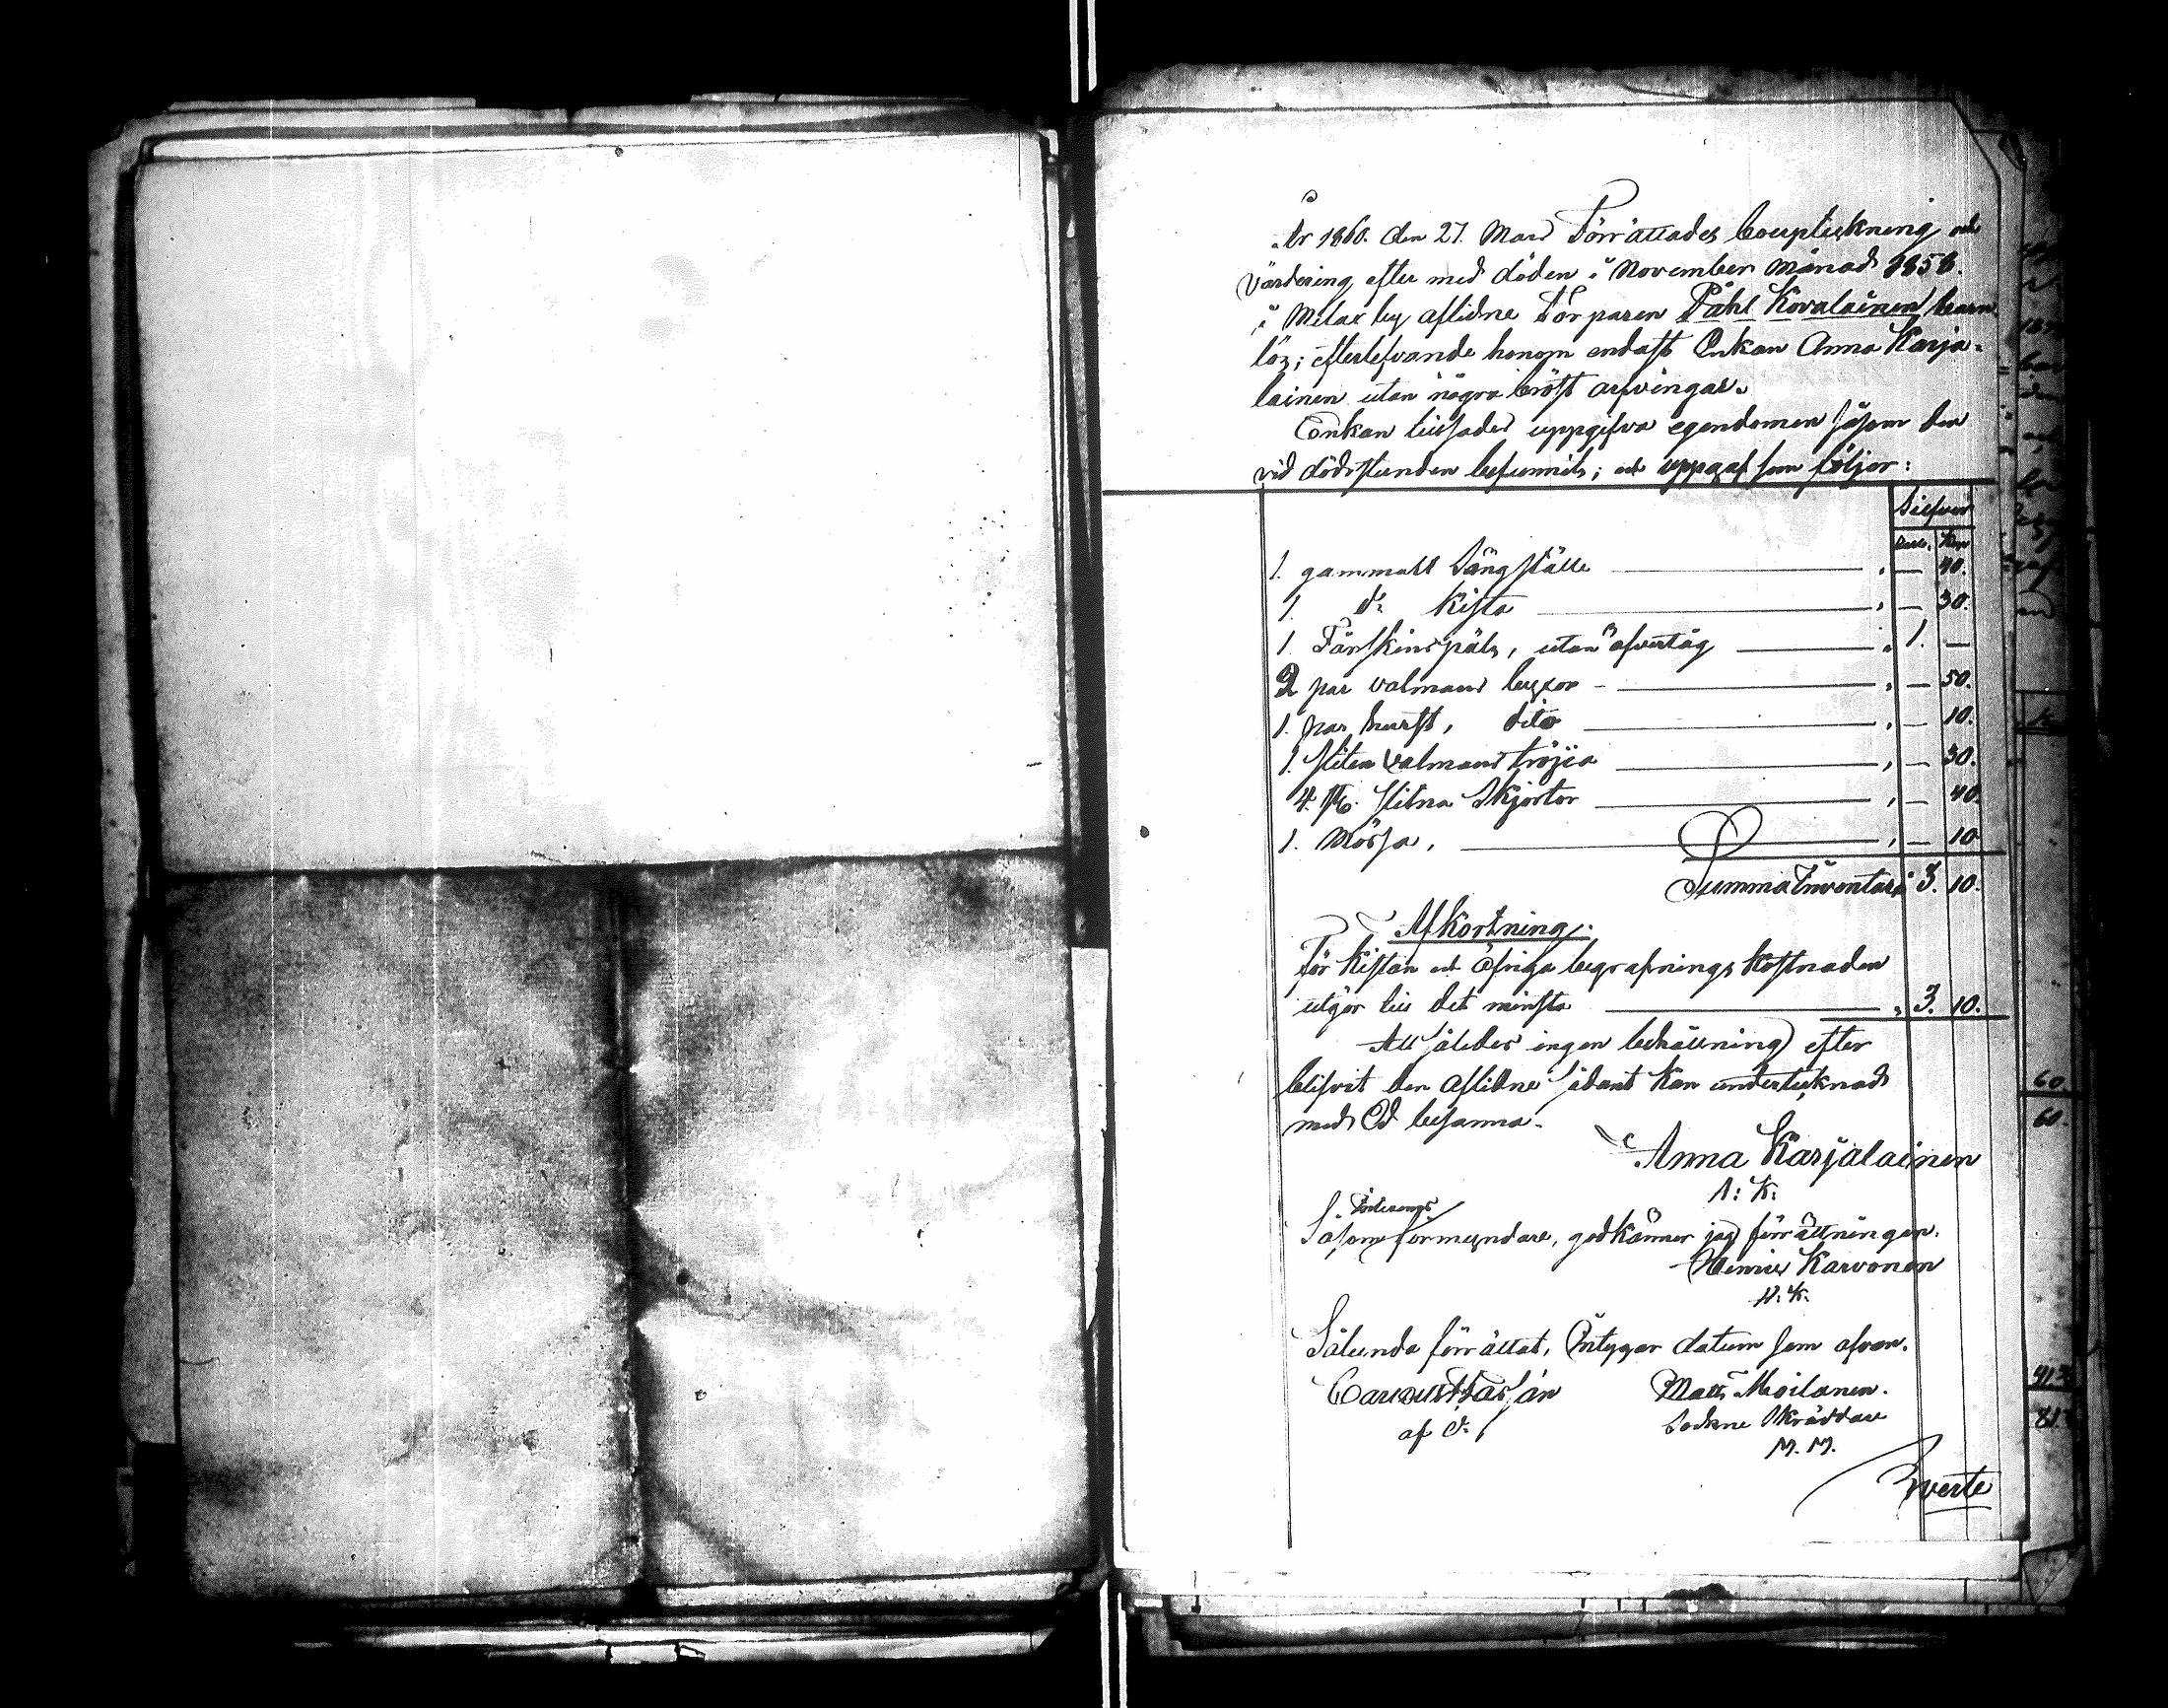 År 1860. den 27. Mars Förrättades bouptekning och
värdering efter med döden i November månad 1858.
i Melax by aflidne Torparen Påhl Kovalainen barn
lös; efterlefvande honom endast Enkan Anna Karja-
lainen utan några bröst arfvingar.
Enkan tillsades uppgifva egendomen såsom den
vid dödsstunden befunnits; och uppgaf som följer:
Silfver
Rub. Kop
1. gammalt Sängställe , — 40.
1. do Kista , — 30.
1. Fårskinspäls, utan öfvertåg , 1. —
2 par valmans byxor , — 50.
1. par hurst, dito , — 10.
1. sliten valmans tröjia , — 30.
4. st. slitna Skjortor , — 40.
1. Mössa, , — 10
Summa Inventarii 3. 10.
Afkortning.
För Kistan och öfriga begrafnings kostnaden
utgör till det minsta , 3. 10.
Att således ingen behållning efter
blifvit den aflidne sådant kan undertecknad
med Ed besanna.
Anna Karjalainen
A: K:
Såsom formyndare, godkänner jag förrättningen.
Karvonen
H: K:
Sålunda förrättat, Intygar datum som ofvan.
af d. Matts Moilanen.
Sockne Skräddare
M. M.
Verte
60
60.